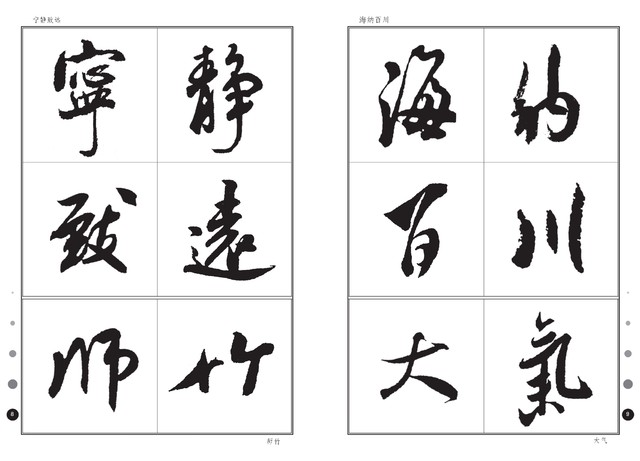 宁静致远
寧静
致遠
師竹
师竹
海纳百川
海纳
百川
大氣
大气